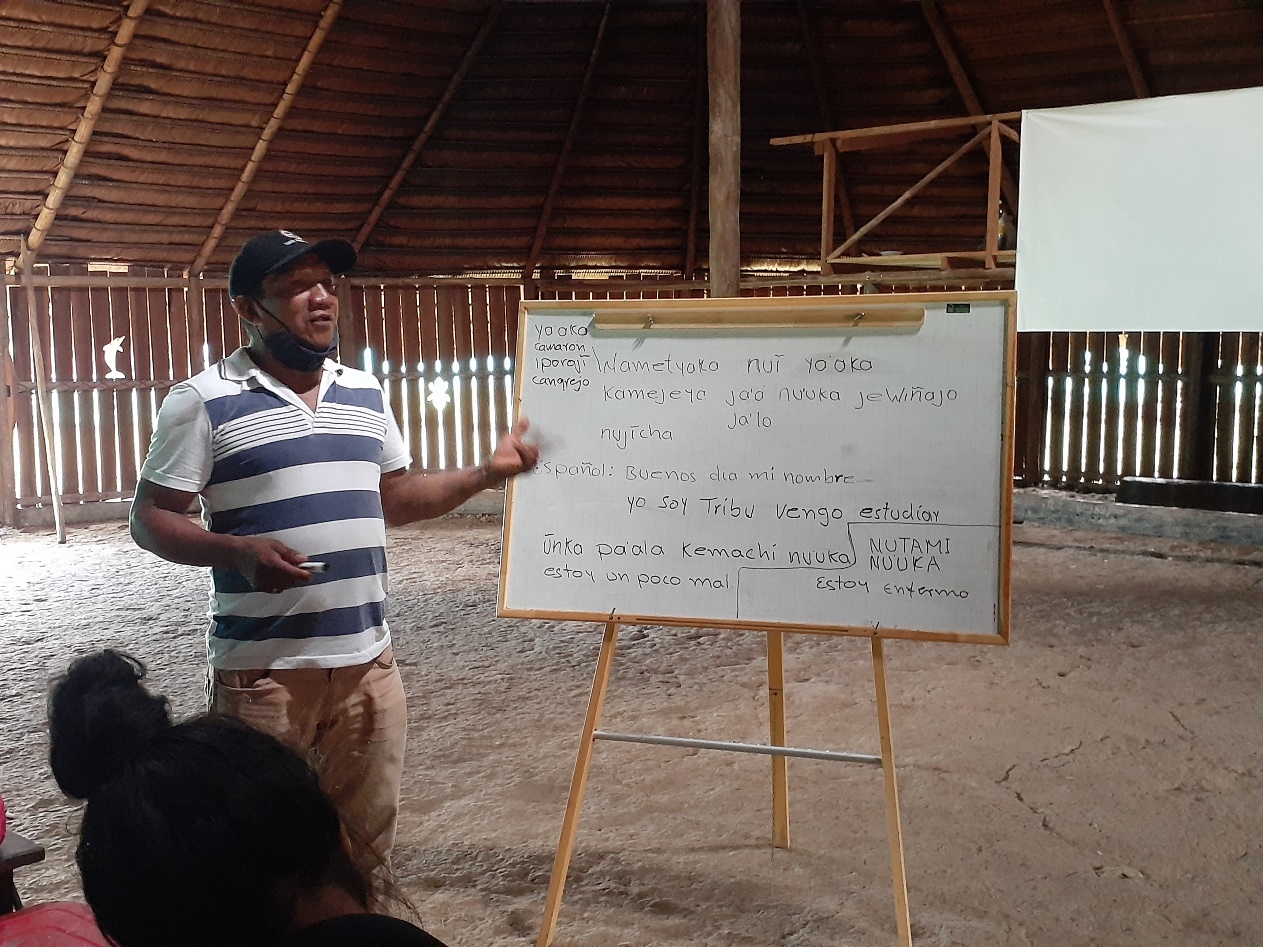 yo'oka
camaron
iporají
cangrejo
Wametyoko nuī yo'oka
kamejeyo ja'ó nu'uka jewiñajo
ja'lo
nujīcha
Español: Buenos dia mi nombre
yo soy Tribu vengo estudiar
Ũnka pa'ala kemachi nu'uka
estoy un poco mal
NUTAMI
NU'UKA
Estoy enfermo